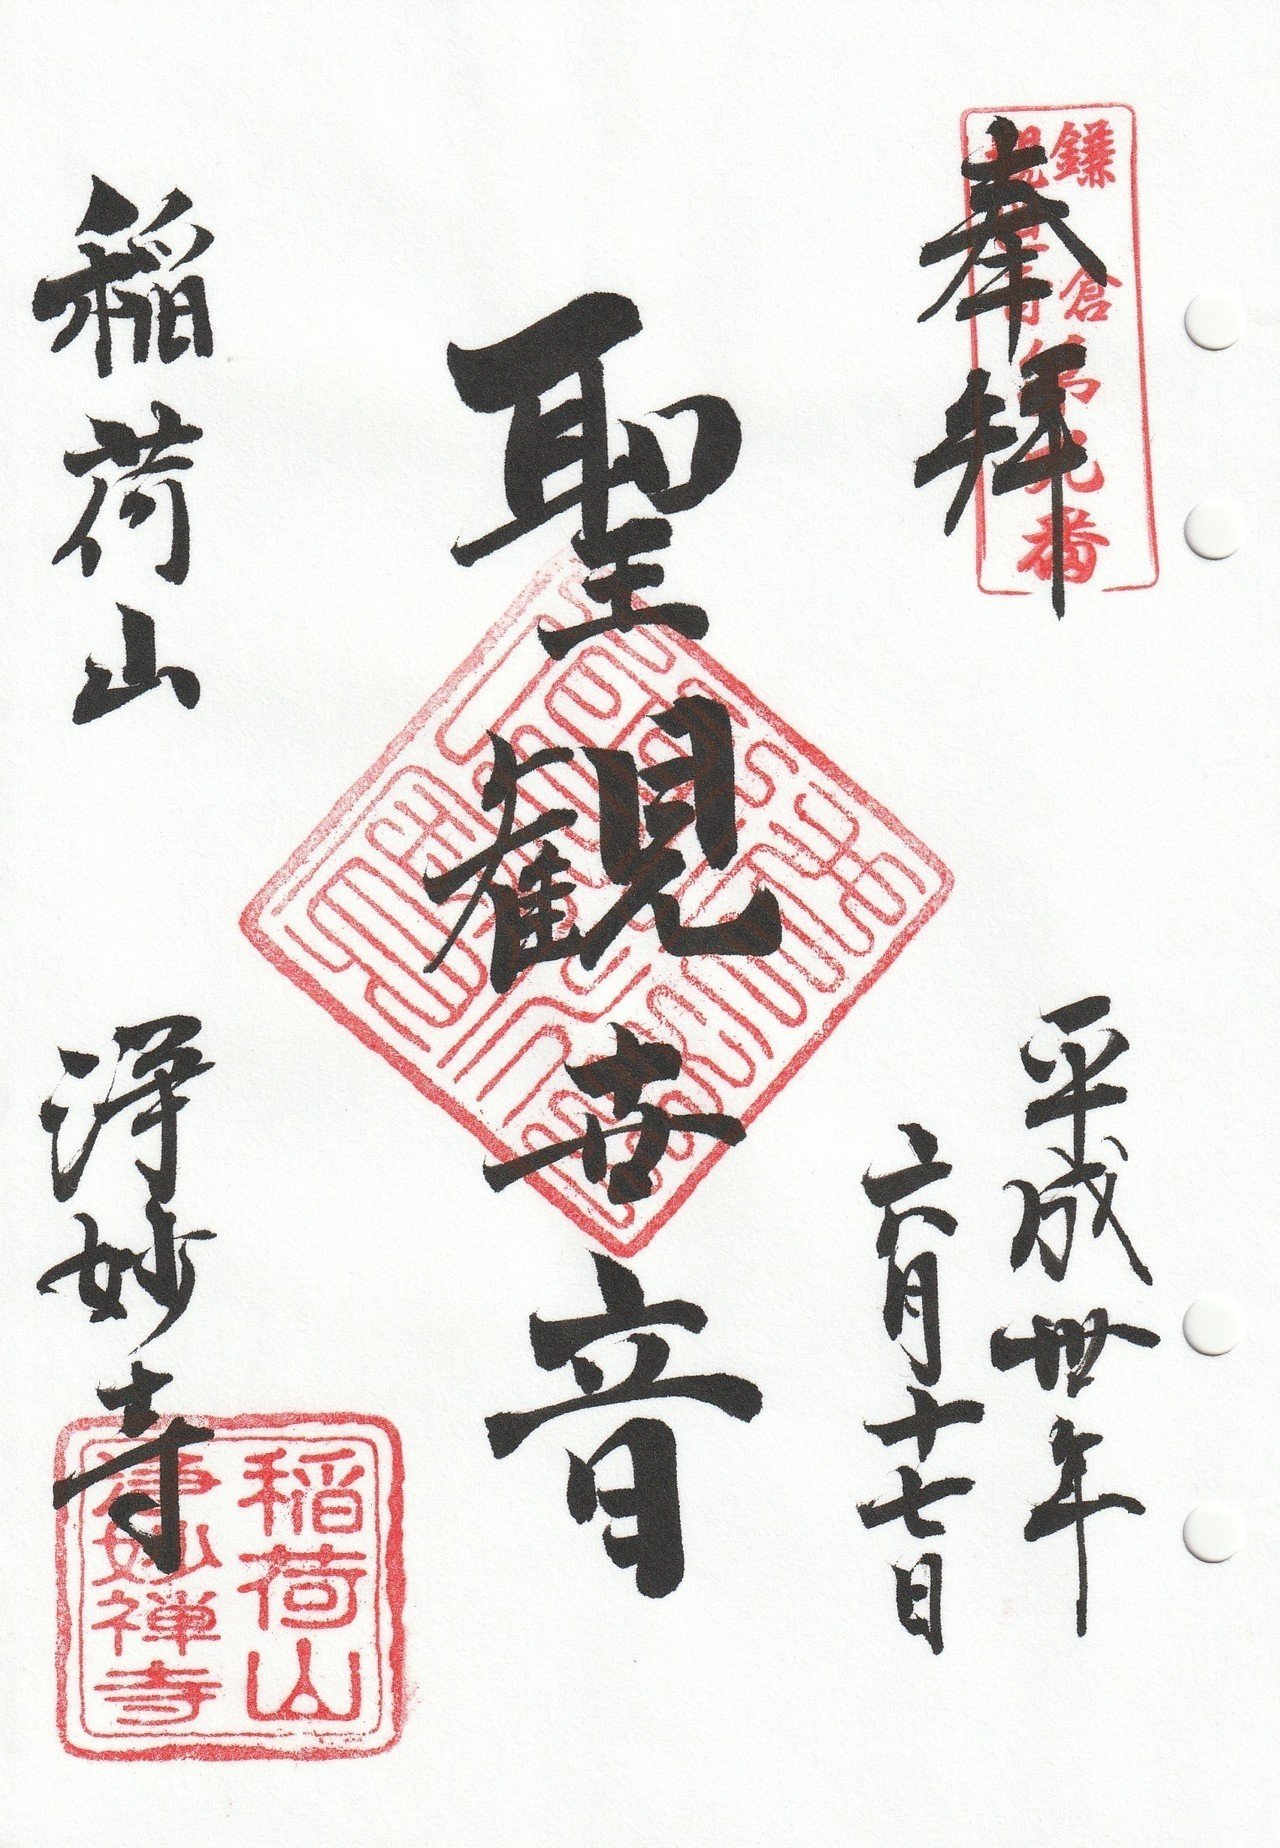 奉拝
鎌倉
観世音
第九番
平成卅年
六月十七日
聖観世音
稲荷山
浄妙寺
稲荷山
浄妙禅寺